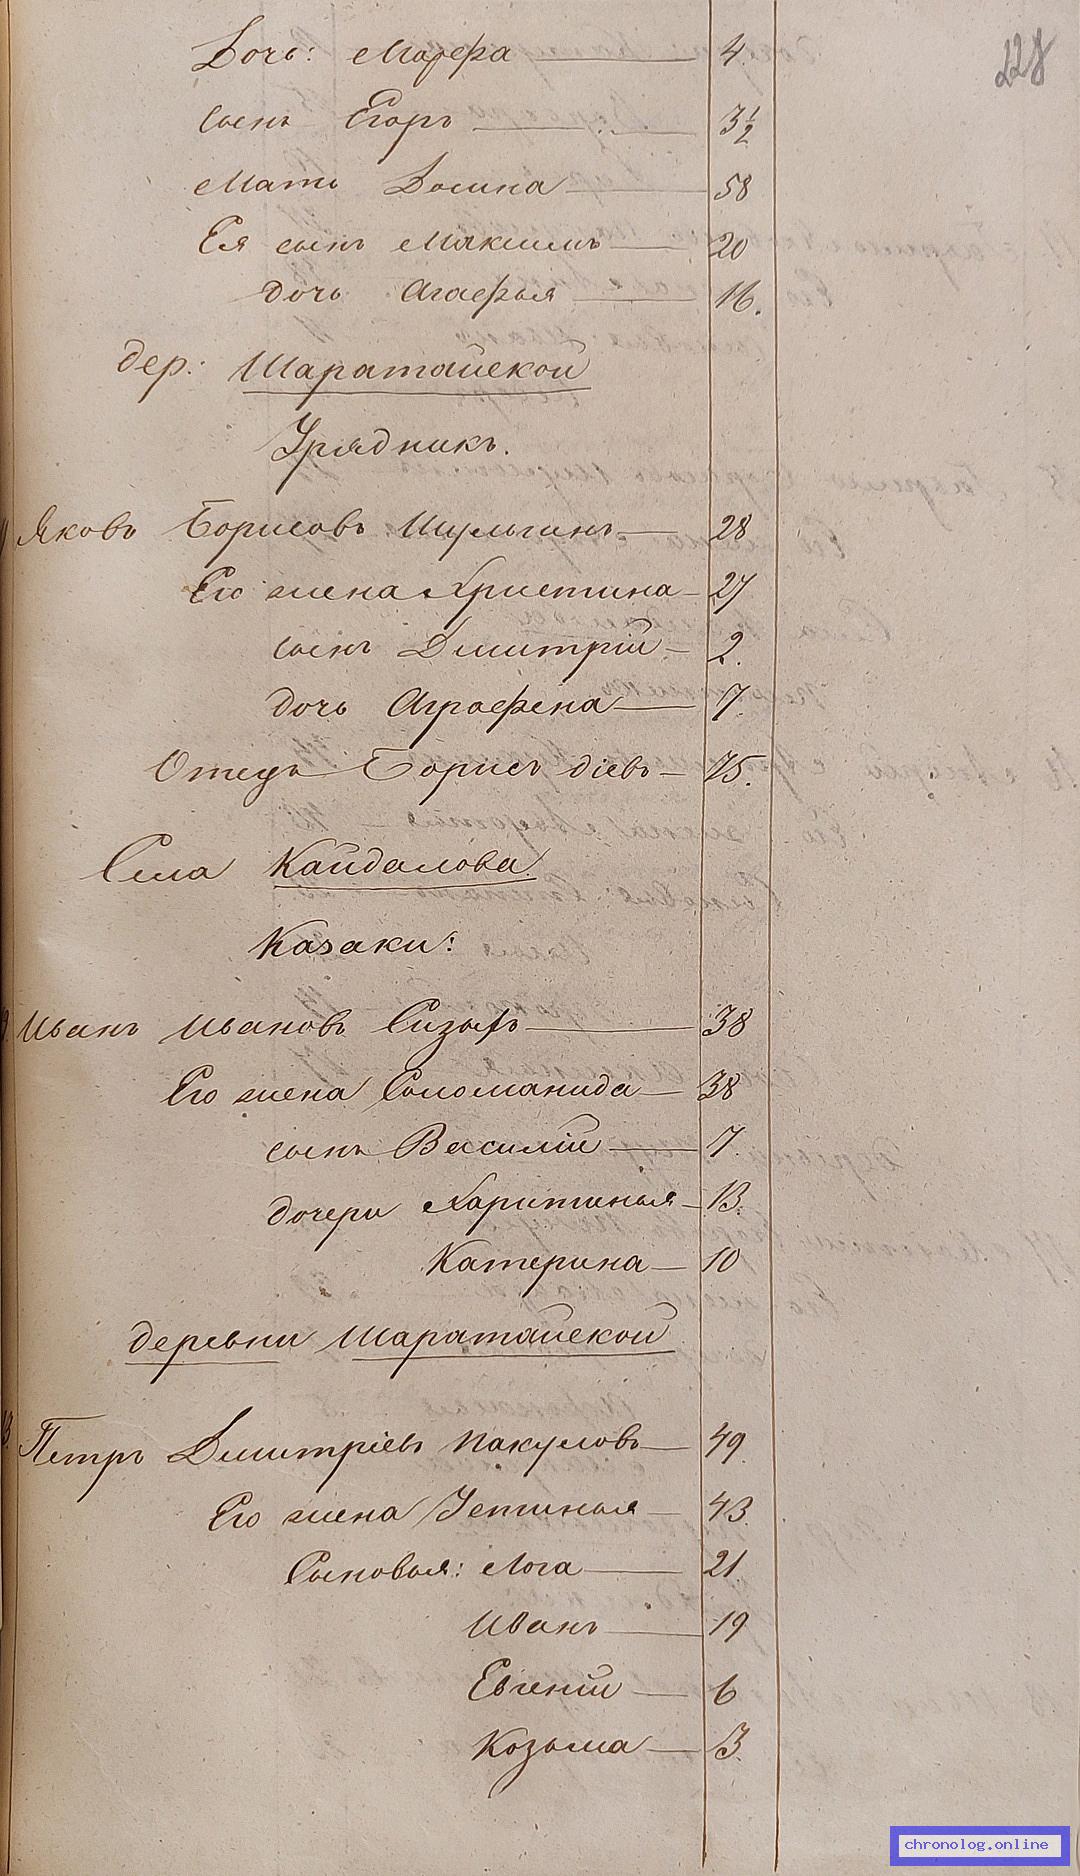 228
Дочь: Марфа 4.
сынъ Егоръ 3½
Мать Домна 58
Ея сынъ Максимъ 20
дочь Агафья 16.
дер: Шаратайской
Урядникъ.
Яковъ Борисовъ Шульгинъ 28
Его жена Христина 27
сынъ Дмитрій 2.
дочь Аграфена 7.
Отецъ Борисъ 75.
Села Кайдалова.
Казаки:
Иванъ Ивановъ Сизыхъ 38
Его жена Соломанида 38
сынъ Василій 7.
дочери Харитинья 13.
Катерина 10
деревни Шаратайской
13. Петръ Дмитріевъ Пакуловъ 49.
Его жена Устинья 43.
Сыновья: Лога 21
Иванъ 19
Евгеній 6
Козьма 3.
chronolog.online